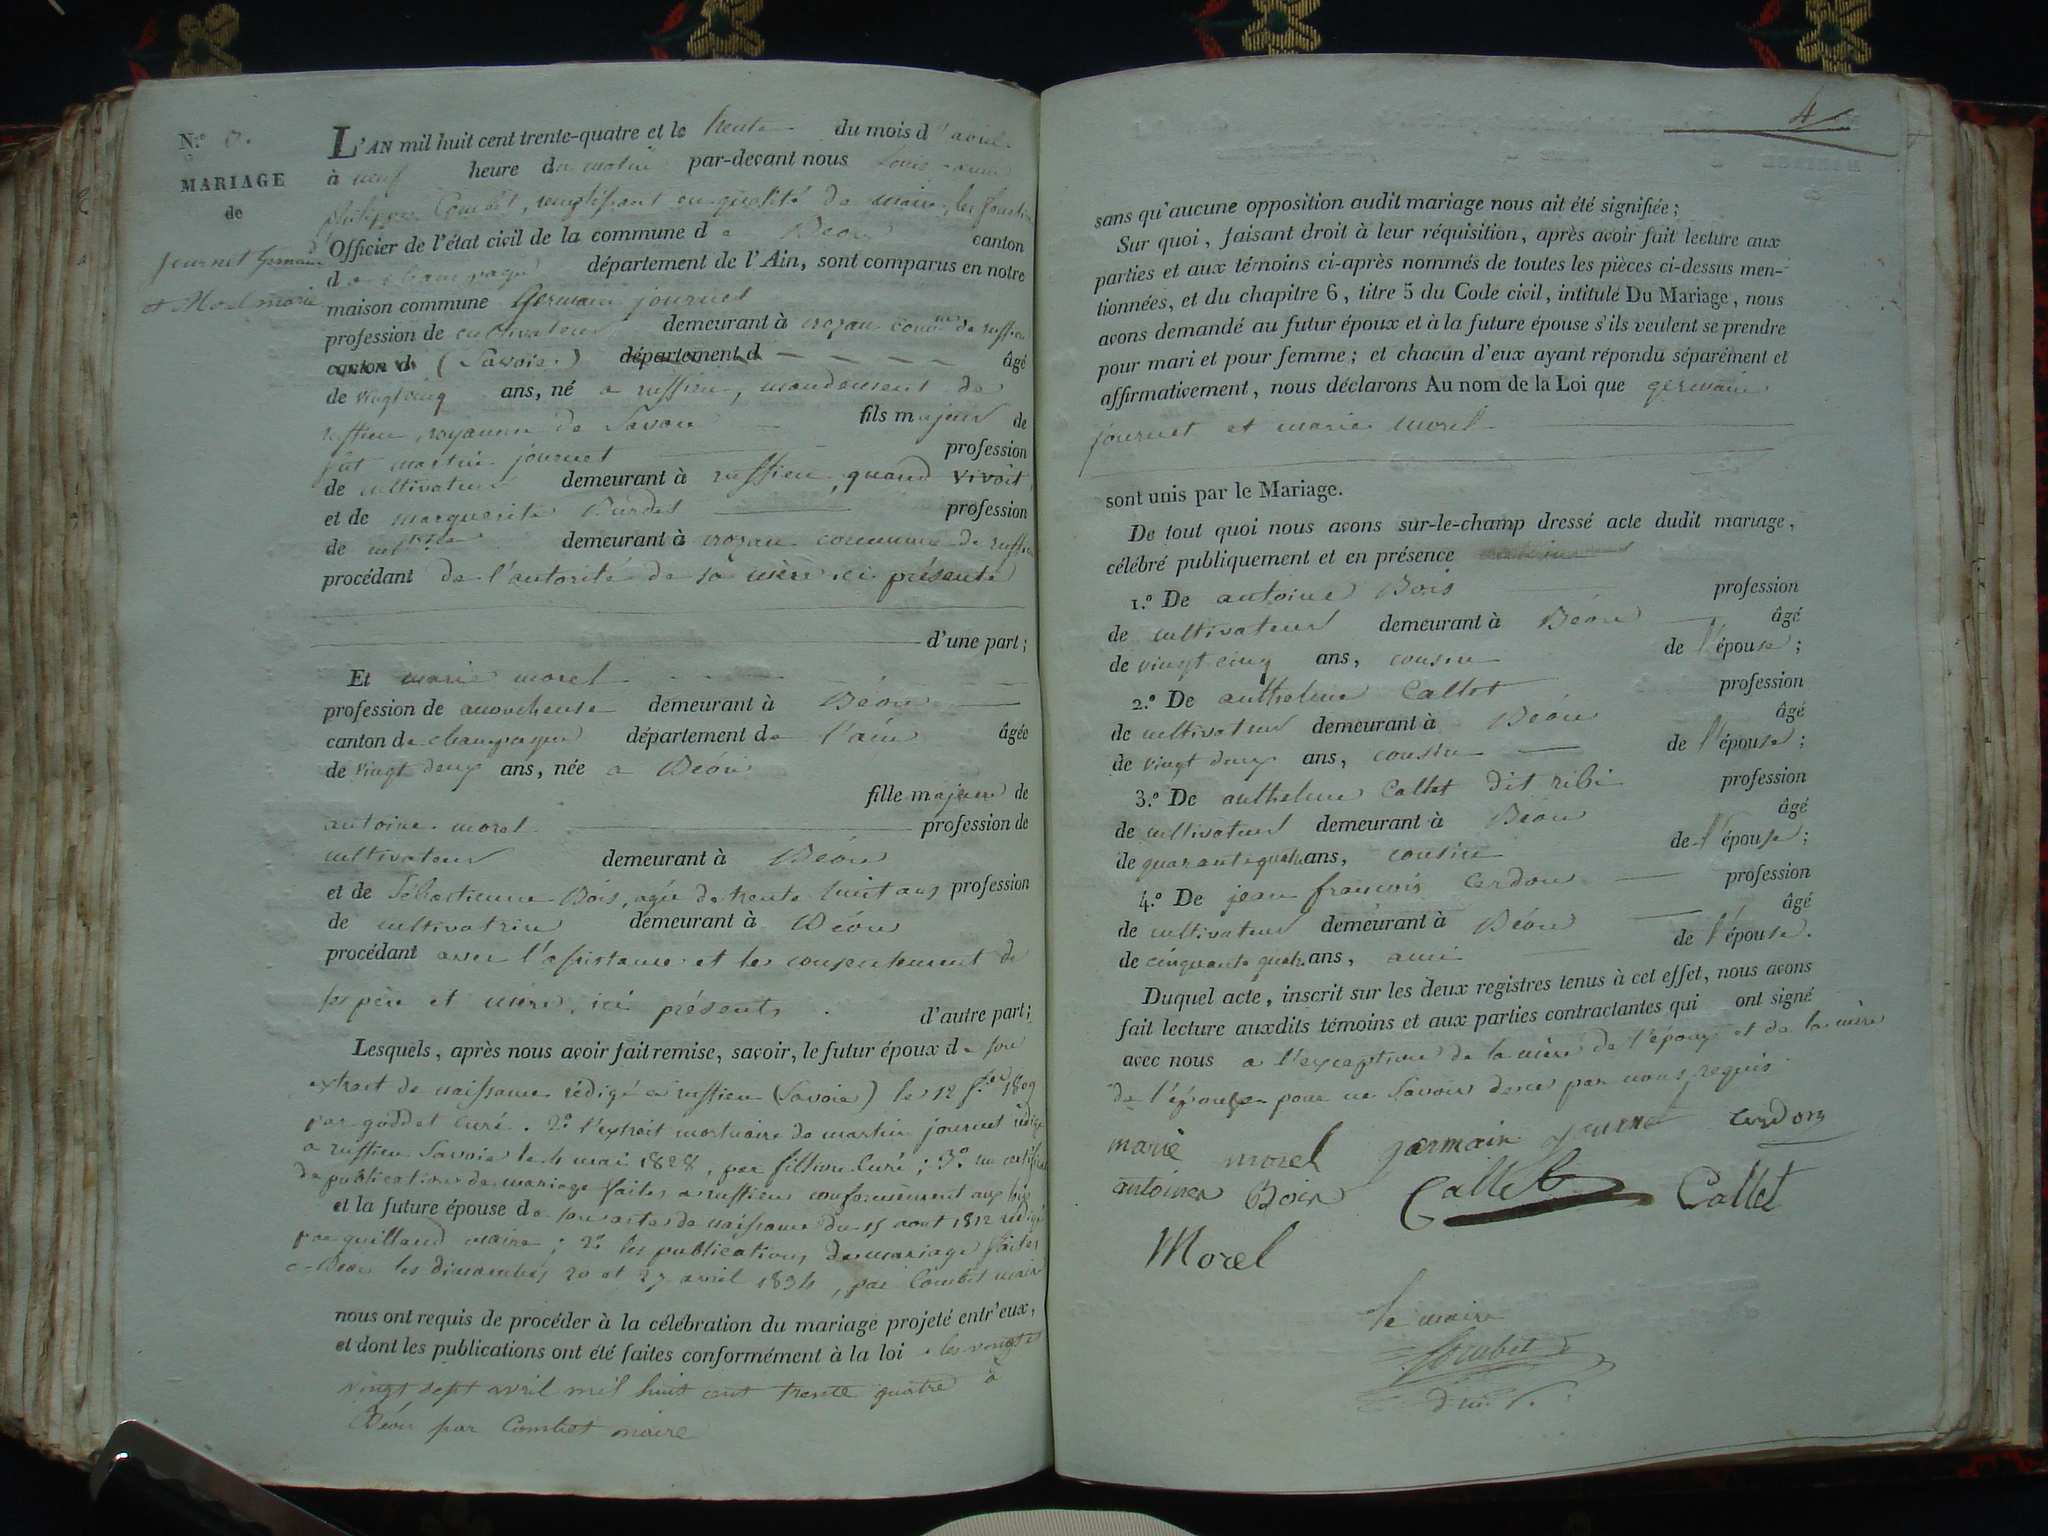 N.º 3.
MARIAGE
de
journet Germain
et Morel marie
L'AN mil huit cent trente-quatre et le trente du mois d'avril
à neuf heure du matin par-devant nous Louis
philippe Combet, remplissant en qualité de maire, les fonctions
Officier de l'état civil de la commune de Béon canton
de champagne département de l'Ain, sont comparus en notre
maison commune Germain journet
profession de cultivateur demeurant à crozan comm.ne de ruffieu
canton d (Savoie) département d âgé
de vingt cinq ans, né a ruffieu, mandement de
ruffieu, royaume de Savoie fils majeur de
fut martin journet profession
de cultivateur demeurant à ruffieu, quand vivoit,
et de marguerite Burdet profession
de cult.rice demeurant à crozan commune de ruffieu
procédant de l'autorité de sa mère ici présente
d'une part;
Et marie morel
profession de accoucheuse demeurant à Béon
canton de champagne département de l'ain âgée
de vingt deux ans, née a Béon
fille majeure de
antoine morel profession de
cultivateur demeurant à Béon
et de Sébastienne Bois, agée de trente huit ans profession
de cultivatrice demeurant à Béon
procédant avec l'assistance et le consentement de
ses père et mère, ici présents. d'autre part;
Lesquels, après nous avoir fait remise, savoir, le futur époux de son
extrait de naissance rédigé a ruffieu (Savoie) le 12 f.er 1809
par goddet curé. 2.º l'extrait mortuaire de martin journet rédigé
a ruffieu Savoie le 4 mai 1828, par fillion Curé; 3.º un certificat
de publication de mariage faites a ruffieu conformément aux lois
et la future épouse de son acte de naissance du 15 aout 1812 rédigé
par guilland maire; 2.º les publications de mariage faites
a Béon les dimanches 20 et 27 avril 1834, par Combet maire
nous ont requis de procéder à la célébration du mariage projeté entr'eux,
et dont les publications ont été faites conformément à la loi les vingt et
vingt sept avril mil huit cent trente quatre à
Béon par Combet maire
4
sans qu'aucune opposition audit mariage nous ait été signifiée;
Sur quoi, faisant droit à leur réquisition, après avoir fait lecture aux
parties et aux témoins ci-après nommés de toutes les pièces ci-dessus men-
tionnées, et du chapitre 6, titre 5 du Code civil, intitulé Du Mariage, nous
avons demandé au futur époux et à la future épouse s'ils veulent se prendre
pour mari et pour femme; et chacun d'eux ayant répondu séparément et
affirmativement, nous déclarons Au nom de la Loi que germain
journet et marie morel
sont unis par le Mariage.
De tout quoi nous avons sur-le-champ dressé acte dudit mariage,
célébré publiquement et en présence
1.º De antoine Bois profession
de cultivateur demeurant à Béon âgé
de vingt cinq ans, cousin de l'épouse;
2.º De anthelme Callet profession
de cultivateur demeurant à Béon âgé
de vingt deux ans, cousin de l'épouse;
3.º De anthelme Callet dit ribi profession
de cultivateur demeurant à Béon âgé
de quarante quatre ans, cousin de l'épouse;
4.º De jean françois Cerdon profession
de cultivateur demeurant à Béon âgé
de cinquante quatre ans, ami de l'épouse.
Duquel acte, inscrit sur les deux registres tenus à cet effet, nous avons
fait lecture auxdits témoins et aux parties contractantes qui ont signé
avec nous a l'exception de la mère de l'époux et de la mère
de l'épouse pour ne Savoir de ce par nous requis
marie morel germain journet Cerdon
antoinen Bois Callet Callet
Morel
le maire
Combet